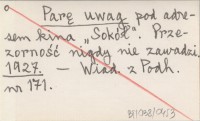 Parę uwag pod adre-
sem kina „Sokół". Prze-
zorność nigdy nie zawadzi.
1927. — Wiad. z Podh.
nr 171.